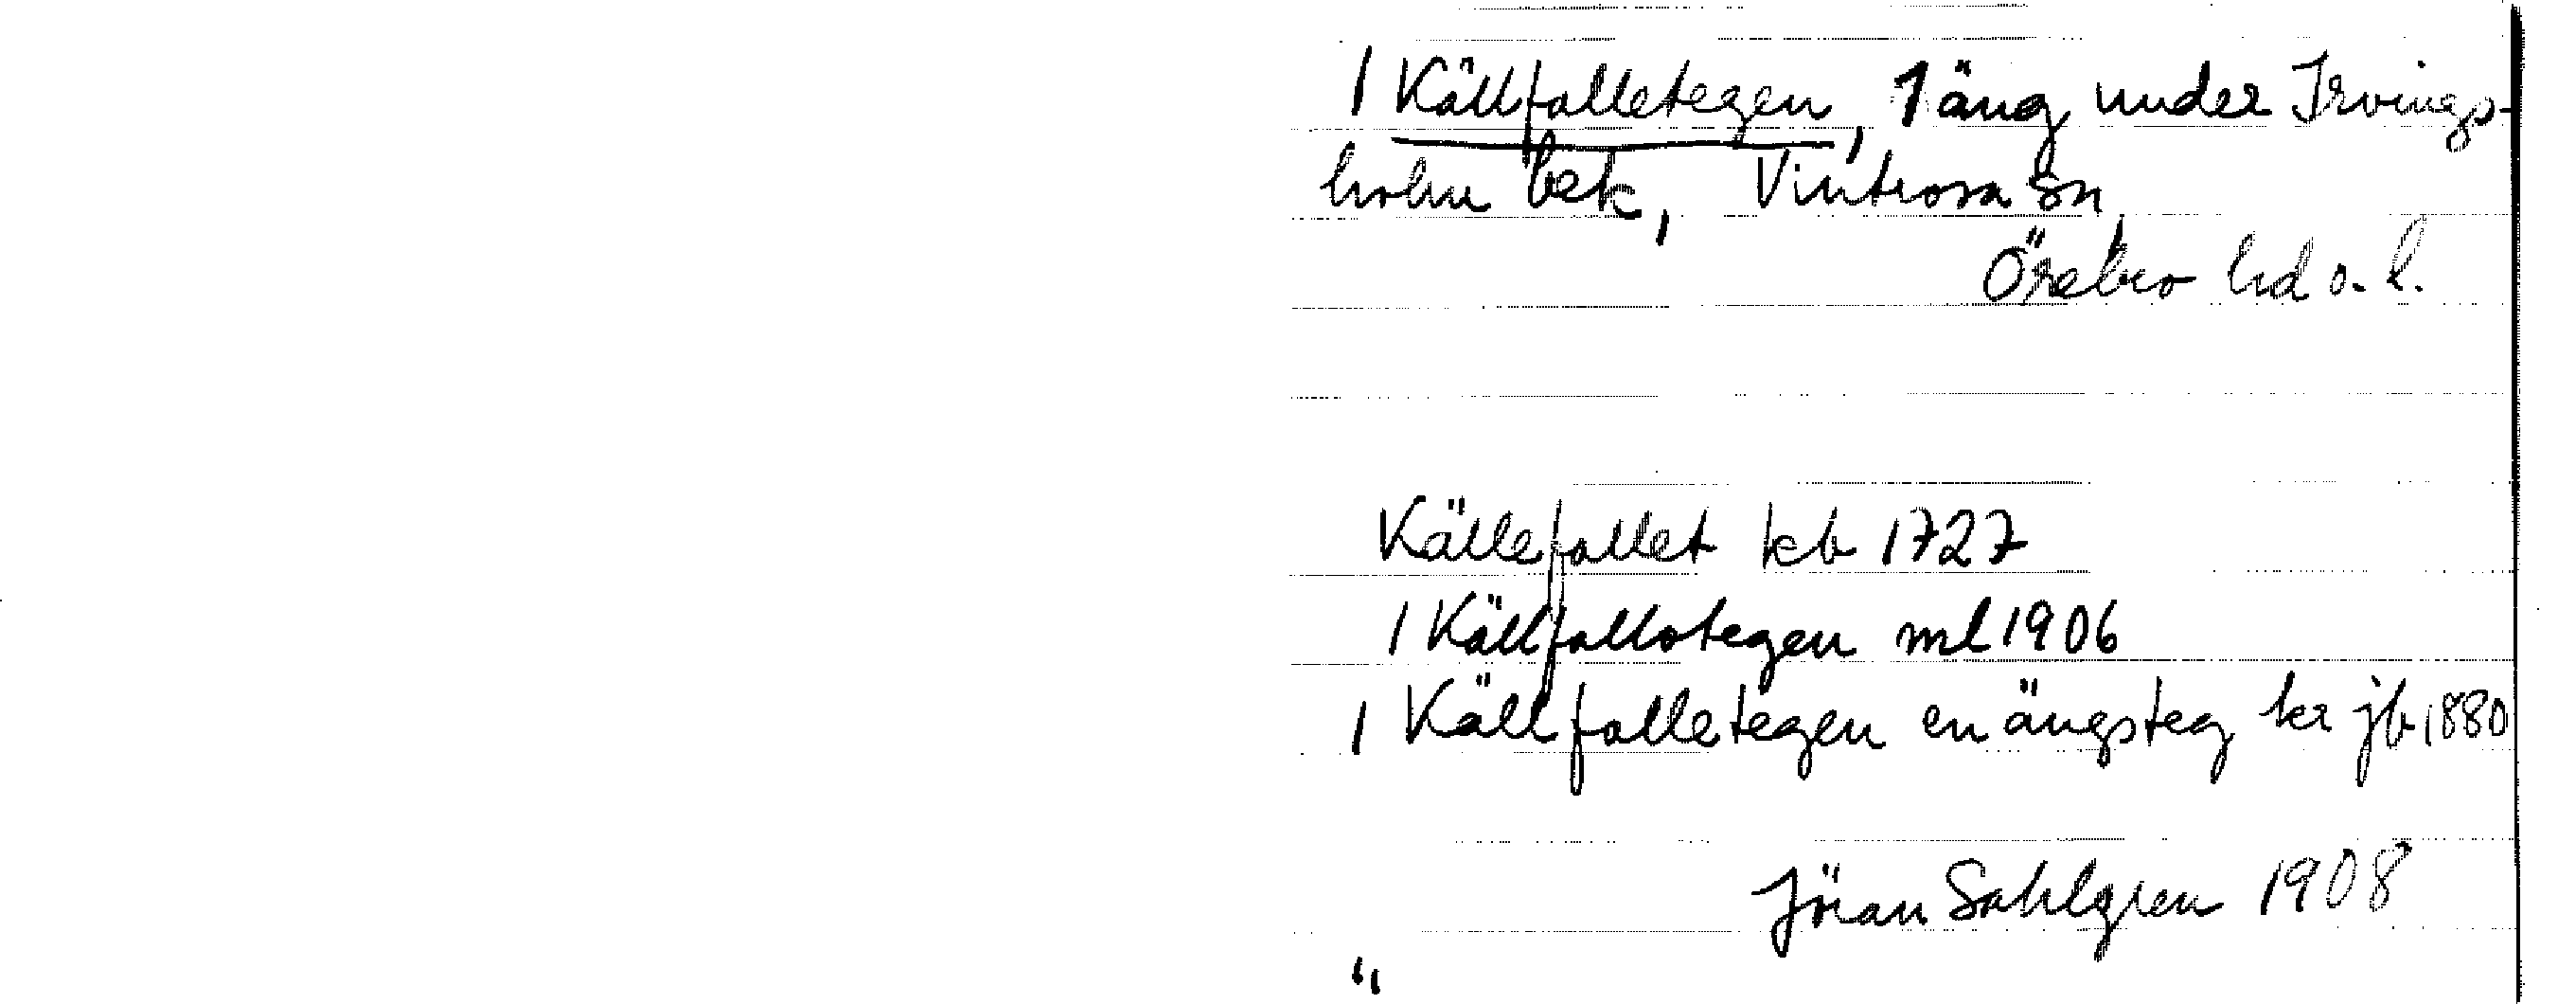 / Källfalletegen, 1 äng under Irvings-
holm bek, Vintrosa sn,
Örebro hd o. l.
Källefallet kb 1727
/ Källfallotegen ml 1906
/ Källfalletegen en ängsteg kr jb 1880
Jöran Sahlgren 1908
"